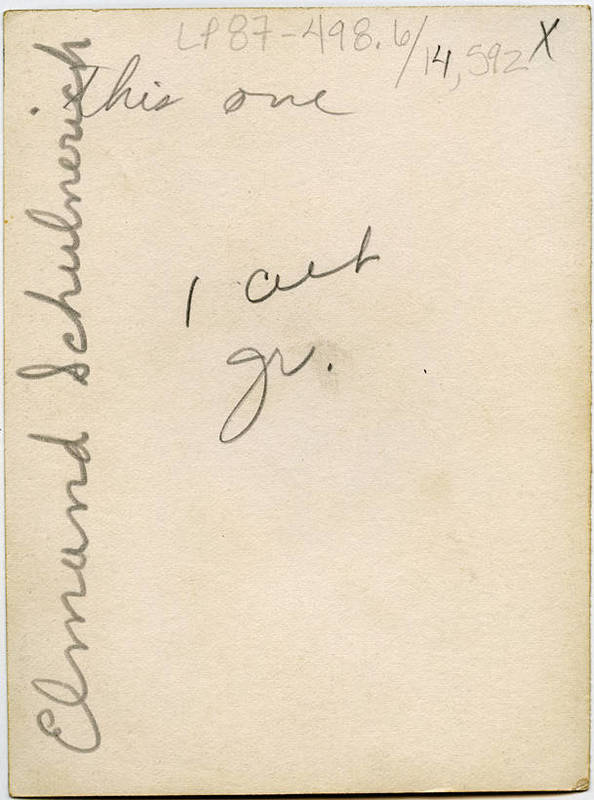 LP87-498.6/14,592 X
This one
1 art
gr.
Elmund Schulmerich